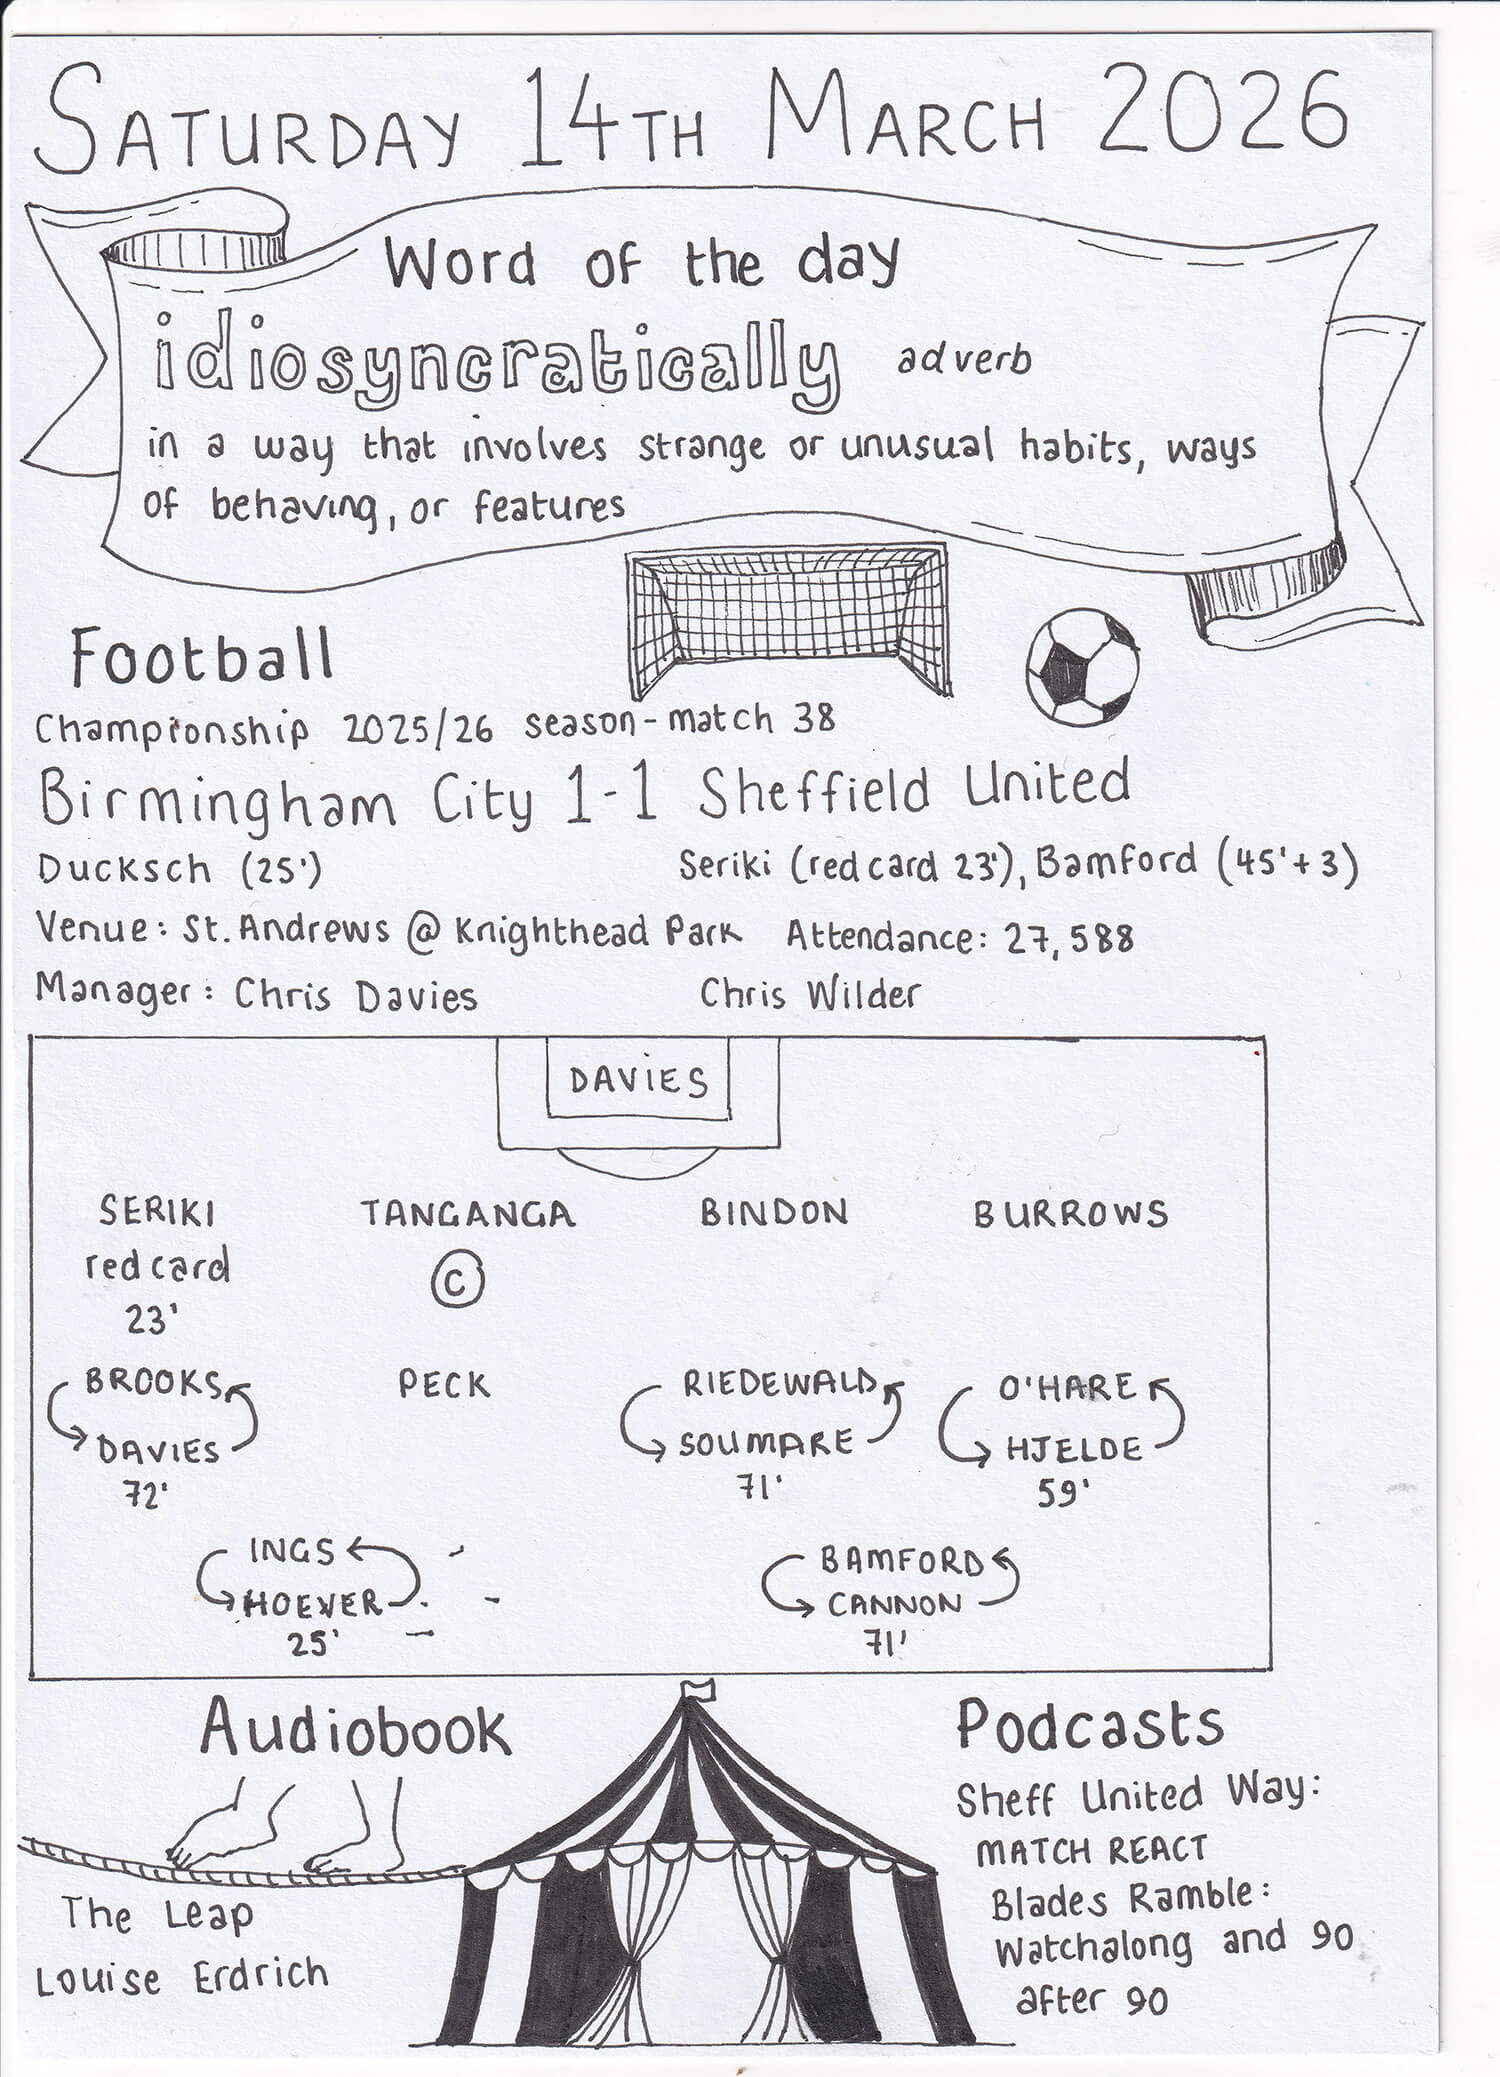 SATURDAY 14TH MARCH 2026
Word of the day
idiosyncratically adverb
in a way that involves strange or unusual habits, ways
of behaving, or features
Football
Championship 2025/26 season - match 38
Birmingham City 1-1 Sheffield United
Ducksch (25') Seriki (red card 23'), Bamford (45'+3)
Venue: St. Andrews @ Knighthead Park Attendance: 27,588
Manager: Chris Davies Chris Wilder
DAVIES
SERIKI TANGANGA BINDON BURROWS
red card C
23'
BROOKS PECK RIEDEWALD O'HARE
DAVIES SOUMARE HJELDE
72' 71' 59'
INGS BAMFORD
HOEVER CANNON
25' 71'
Audiobook
The Leap
Louise Erdrich
Podcasts
Sheff United Way:
MATCH REACT
Blades Ramble:
Watchalong and 90
after 90